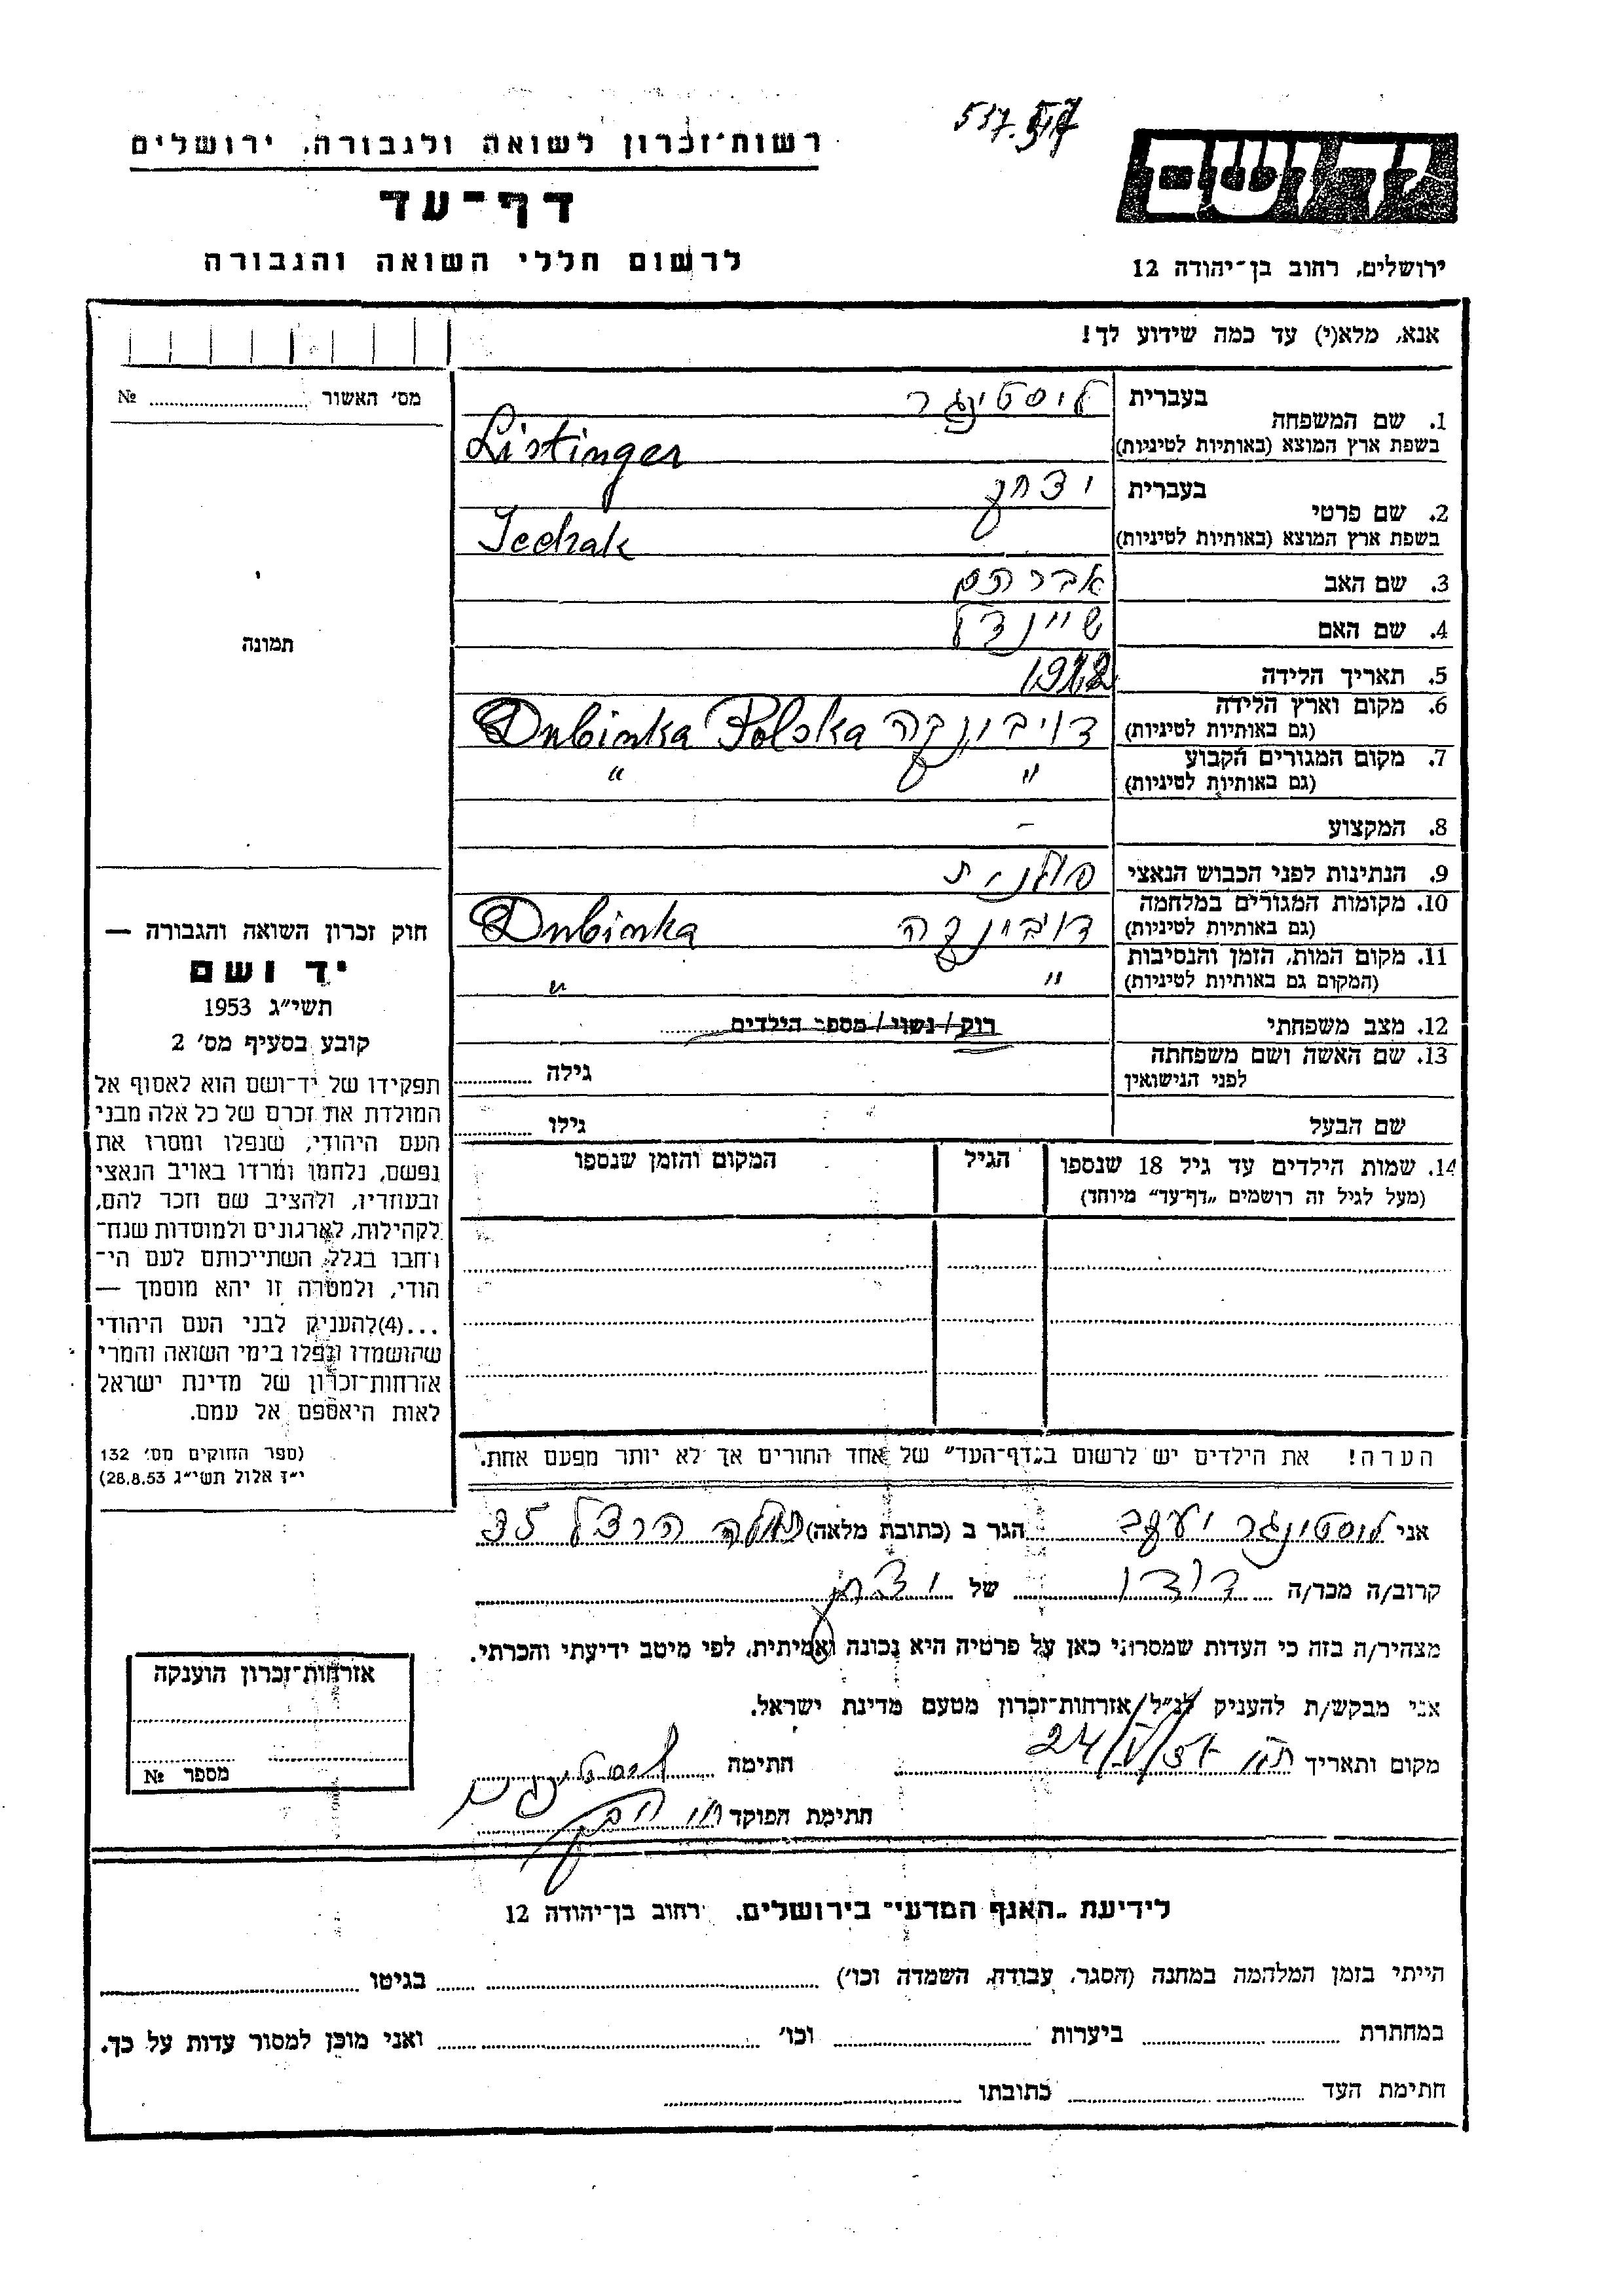 רשות־זכרון לשואה ולגבורה, ירושלים
דף־עד
לרשום חללי השואה והגבורה
יד ושם
ירושלים, רחוב בן־יהודה 12
אנא, מלא(י) עד כמה שידוע לך!
מס' האשור № ....................
תמונה
1. שם המשפחה
בעברית ליסטינגר
בשפת ארץ המוצא (באותיות לטיניות) Listinger
2. שם פרטי
בעברית יצחק
בשפת ארץ המוצא (באותיות לטיניות) Icchak
3. שם האב אברהם
4. שם האם שיינדל
5. תאריך הלידה 1912
6. מקום וארץ הלידה
(גם באותיות לטיניות) דובינקה Dubinka Polska
7. מקום המגורים הקבוע
(גם באותיות לטיניות) " "
8. המקצוע –
9. הנתינות לפני הכבוש הנאצי פולנית
10. מקומות המגורים במלחמה
(גם באותיות לטיניות) דובינקה Dubinka
11. מקום המות, הזמן והנסיבות
(המקום גם באותיות לטיניות) " "
12. מצב משפחתי רוק / נשוי / מספר הילדים
13. שם האשה ושם משפחתה
לפני הנישואין גילה
שם הבעל גילו
14. שמות הילדים עד גיל 18 שנספו הגיל המקום והזמן שנספו
(מעל לגיל זה רושמים „דף־עד" מיוחד)
חוק זכרון השואה והגבורה —
יד ושם
תשי"ג 1953
קובע בסעיף מס' 2
תפקידו של יד־ושם הוא לאסוף אל
המולדת את זכרם של כל אלה מבני
העם היהודי, שנפלו ומסרו את
נפשם, נלחמו ומרדו באויב הנאצי
ובעוזריו, ולהציב שם וזכר להם,
לקהילות, לארגונים ולמוסדות שנח־
רבו בגלל השתייכותם לעם הי־
הודי, ולמטרה זו יהא מוסמך —
...(4) להעניק לבני העם היהודי
שהושמדו ונפלו בימי השואה והמרי
אזרחות־זכרון של מדינת ישראל
לאות היאספם אל עמם.
(ספר החוקים מס' 132
י"ז אלול תשי"ג 28.8.53)
הערה! את הילדים יש לרשום ב„דף־העד" של אחד ההורים אך לא יותר מפעם אחת.
אני ליסטינגר יעקב הגר ב (כתובת מלאה) הרצל 35
קרוב/ה מכר/ה דודו של יצחק
מצהיר/ה בזה כי העדות שמסרתי כאן על פרטיה היא נכונה ואמיתית, לפי מיטב ידיעתי והכרתי.
אני מבקש/ת להעניק לנ"ל אזרחות־זכרון מטעם מדינת ישראל.
מקום ותאריך 24/V/57 חתימה
חתימת הפוקד
אזרחות־זכרון הוענקה
מספר №
לידיעת „האגף המדעי" בירושלים, רחוב בן־יהודה 12
הייתי בזמן המלחמה במחנה (הסגר, עבודה, השמדה וכו') בגיטו
במחתרת ביערות וכו' ואני מוכן למסור עדות על כך.
חתימת העד כתובתו